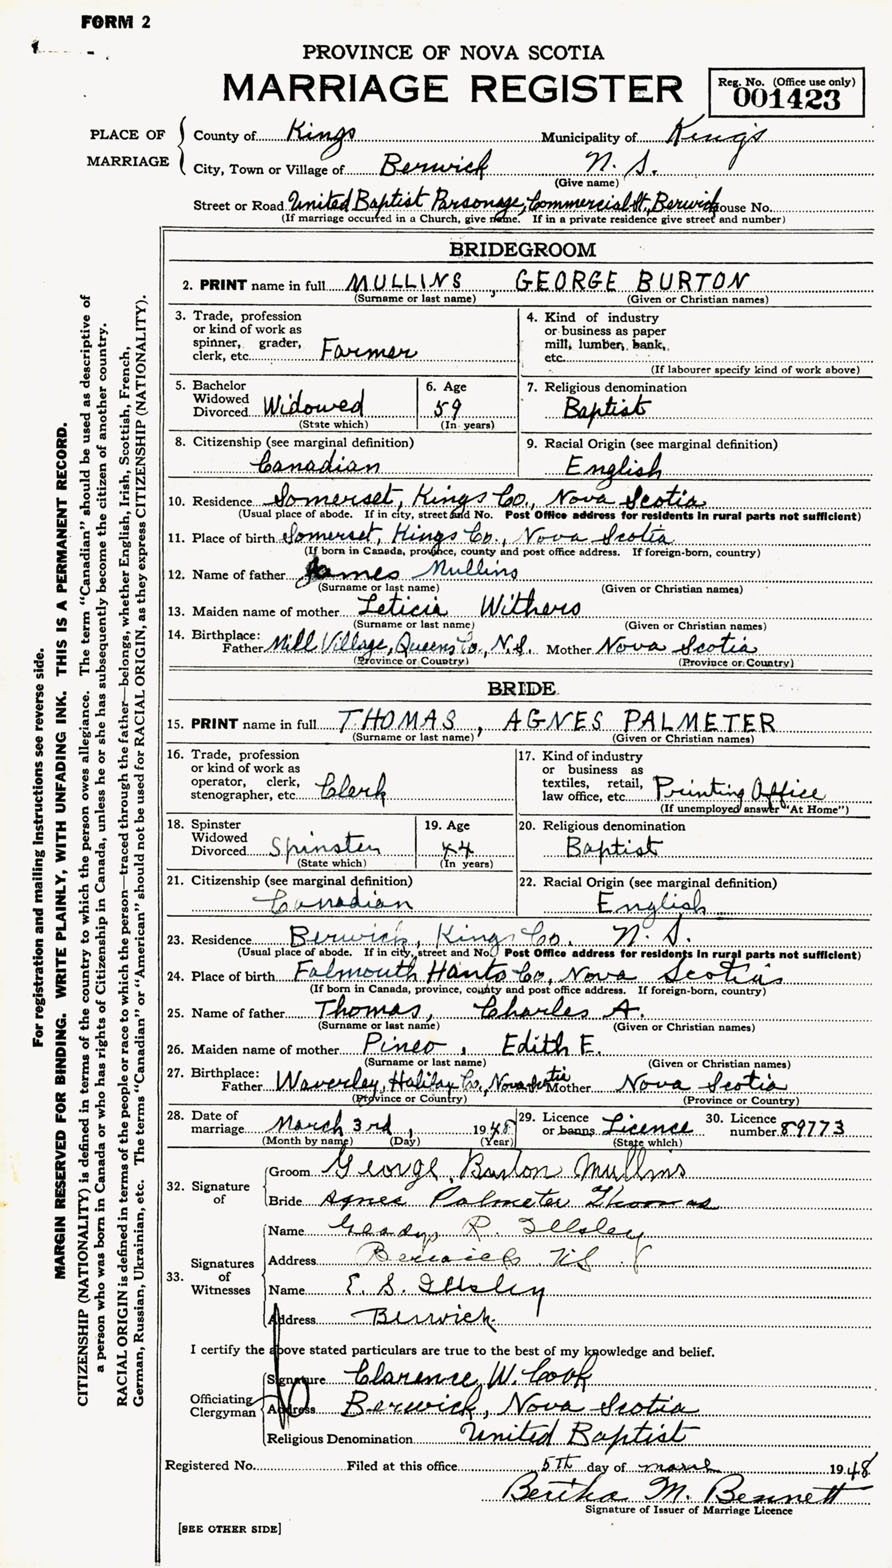 FORM 2
PROVINCE OF NOVA SCOTIA
MARRIAGE REGISTER
Reg. No. (Office use only)
001423
PLACE OF MARRIAGE
County of Kings Municipality of Kings
City, Town or Village of Berwick N. S.
(Give name)
Street or Road United Baptist Parsonage, Commercial St., Berwick House No.
(If marriage occured in a Church, give name. If in a private residence give street and number)
BRIDEGROOM
2. PRINT name in full MULLINS, GEORGE BURTON
(Surname or last name) (Given or Christian names)
3. Trade, profession
or kind of work as
spinner, grader,
clerk, etc. Farmer
4. Kind of industry
or business as paper
mill, lumber, bank,
etc.
(If labourer specify kind of work above)
5. Bachelor
Widowed
Divorced Widowed
(State which)
6. Age
59
(In years)
7. Religious denomination
Baptist
8. Citizenship (see marginal definition)
Canadian
9. Racial Origin (see marginal definition)
English
10. Residence Somerset, Kings Co., Nova Scotia
(Usual place of abode. If in city, street and No. Post Office address for residents in rural parts not sufficient)
11. Place of birth Somerset, Kings Co., Nova Scotia
(If born in Canada, province, county and post office address. If foreign-born, country)
12. Name of father James Mullins
(Surname or last name) (Given or Christian names)
13. Maiden name of mother Leticia Withers
(Surname or last name) (Given or Christian names)
14. Birthplace:
Father Mill Village, Queens Co., N.S. Mother Nova Scotia
(Province or Country) (Province or Country)
BRIDE
15. PRINT name in full THOMAS, AGNES PALMETER
(Surname or last name) (Given or Christian names)
16. Trade, profession
or kind of work as
operator, clerk,
stenographer, etc Clerk
17. Kind of industry
or business as
textiles, retail,
law office, etc. Printing Office
(If unemployed answer "At Home")
18. Spinster
Widowed
Divorced Spinster
(State which)
19. Age
44
(In years)
20. Religious denomination
Baptist
21. Citizenship (see marginal definition)
Canadian
22. Racial Origin (see marginal definition)
English
23. Residence Berwick, Kings Co. N. S.
(Usual place of abode. If in city, street and No. Post Office address for residents in rural parts not sufficient)
24. Place of birth Falmouth Hants Co., Nova Scotia
(If born in Canada, province, county and post office address. If foreign-born, country)
25. Name of father Thomas, Charles A.
(Surname or last name) (Given or Christian names)
26. Maiden name of mother Pineo, Edith E.
(Surname or last name) (Given or Christian names)
27. Birthplace:
Father Waverley, Halifax Co., Nova Scotia Mother Nova Scotia
(Province or Country) (Province or Country)
28. Date of
marriage March 3rd, 1948
(Month by name) (Day) (Year)
29. Licence
or banns Licence
(State which)
30. Licence
number 89773
32. Signature of
Groom George Burton Mullins
Bride Agnes Palmeter Thomas
33. Signatures of Witnesses
Name R. Illsley
Address Berwick NS
Name E. S. Illsley
Address Berwick
I certify the above stated particulars are true to the best of my knowledge and belief.
Officiating Clergyman
Signature Clarence W. Cook
Address Berwick, Nova Scotia
Religious Denomination United Baptist
Registered No. Filed at this office 5th day of March 1948
Bertha M. Bennett
Signature of Issuer of Marriage Licence
[SEE OTHER SIDE]
For registration and mailing instructions see reverse side.
MARGIN RESERVED FOR BINDING. WRITE PLAINLY, WITH UNFADING INK. THIS IS A PERMANENT RECORD.
CITIZENSHIP (NATIONALITY) is defined in terms of the country to which the person owes allegiance. The term "Canadian" should be used as descriptive of
a person who was born in Canada or who has rights of Citizenship in Canada, unless he or she has subsequently become the citizen of another country.
RACIAL ORIGIN is defined in terms of the people or race to which the person—traced through the father—belongs, whether English, Irish, Scottish, French,
German, Russian, Ukrainian, etc. The terms "Canadian" or "American" should not be used for RACIAL ORIGIN, as they express CITIZENSHIP (NATIONALITY).